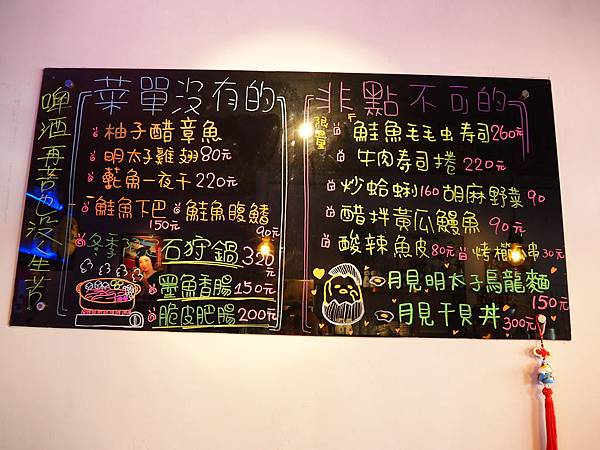 啤酒再苦也沒人生苦
菜單沒有的
柚子醋章魚
明太子雞翅80元
魠魚一夜干220元
鮭魚下巴150元 鮭魚腹鰭90元
冬季限 石狩鍋320元
墨魚香腸150元
脆皮肥腸200元
非點不可的
限量 鮭魚毛毛虫寿司260元
牛肉寿司捲220元
炒蛤蜊160 胡麻野菜90
醋拌黃瓜鰻魚90元
酸辣魚皮80元 烤櫛瓜串30元
月見明太子烏龍麵150元
月見干貝丼300元